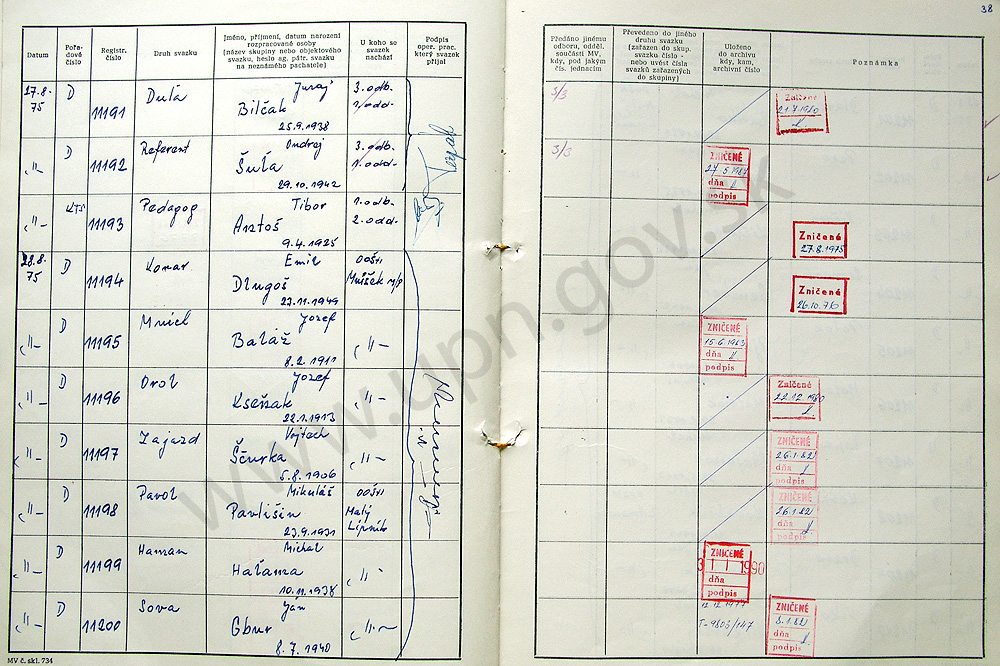 38
Datum
Pořadové číslo
Registr. číslo
Druh svazku
Jméno, příjmení, datum narození
rozpracované osoby
(název skupiny nebo objektového
svazku, heslo ag. pátr. svazku
na neznámého pachatele)
U koho se
svazek
nachází
Podpis
oper. prac.
který svazek
přijal
Předáno jinému
odboru, odděl.
součásti MV,
kdy, pod jakým
čís. jednacím
Převedeno do jiného
druhu svazku
(zařazen do skup.
svazku číslo -
nebo uvést čísla
svazků zařazených
do skupiny)
Uloženo
do archivu
kdy, kam,
archivní číslo
Poznámka
27.8. 75 D 11191 Duľa Juraj Bilčak 25.9.1938 3. odb. 1. odd.
3/3
Zničené 21.7.1980
-"- D 11192 Referent Ondrej Šuľa 29.10.1942 3. odb. 1. odd.
3/3
ZNIČENÉ
dňa
podpis
-"- KTS 11193 Pedagog Tibor Antoš 9.4.1925 1. odb. 2. odd.
Zničené
27.8.1975
28.8. 75 D 11194 Konar Emil Dlugoš 27.11.1949 OOŠtB
Zničené
26.10.76
-"- D 11195 Mnich Jozef Baláž 8.2.1911 -"-
ZNIČENÉ
15.6.1983
dňa
podpis
-"- D 11196 Orol Jozef Kseňak 22.1.1913 -"-
Zničené
22.12.1980
-"- D 11197 Zajazd Vojtech Ščurka 5.8.1906 -"-
ZNIČENÉ
26.1.82
dňa
podpis
-"- D 11198 Pavol Mikuláš Pavlišin 23.9.1931 Malý Lipník
ZNIČENÉ
26.1.82
dňa
podpis
-"- D 11199 Haman Michal Haľama 10.11.1938 -"-
ZNIČENÉ
31 1 1990
dňa
podpis
-"- D 11200 Sova Jan Gbur 8.7.1940 -"-
T-9803/147
ZNIČENÉ
8.1.82
dňa
podpis
MV č. skl. 734
www.upn.gov.sk